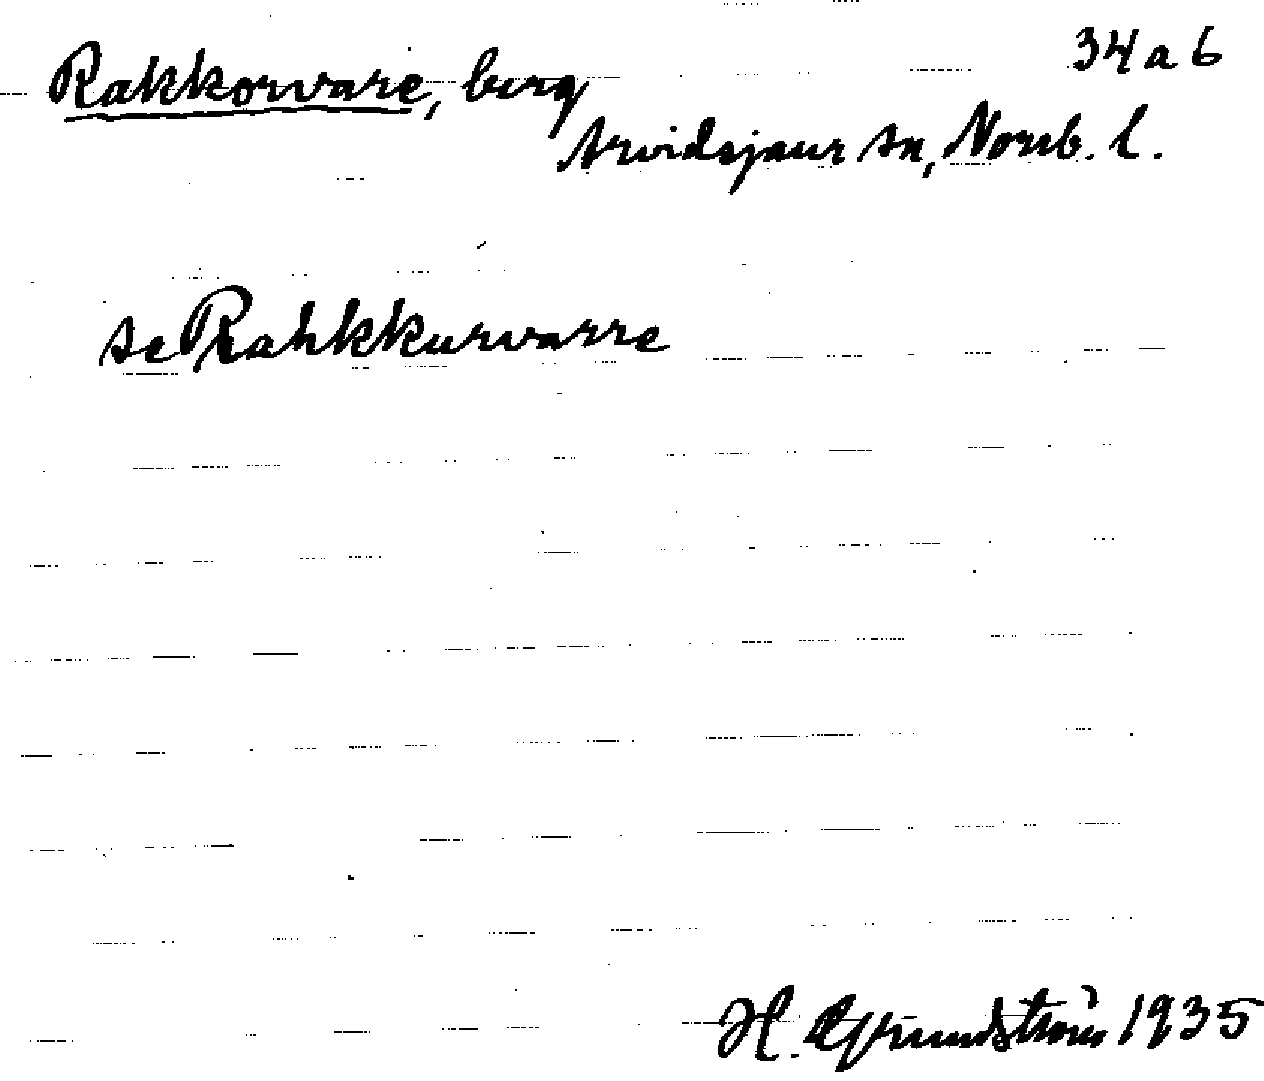 Rakkorvare, berg 34 a 6
Arvidsjaur sn, Norrb. l.
se Rahkkurvarre
H. Grundström 1935